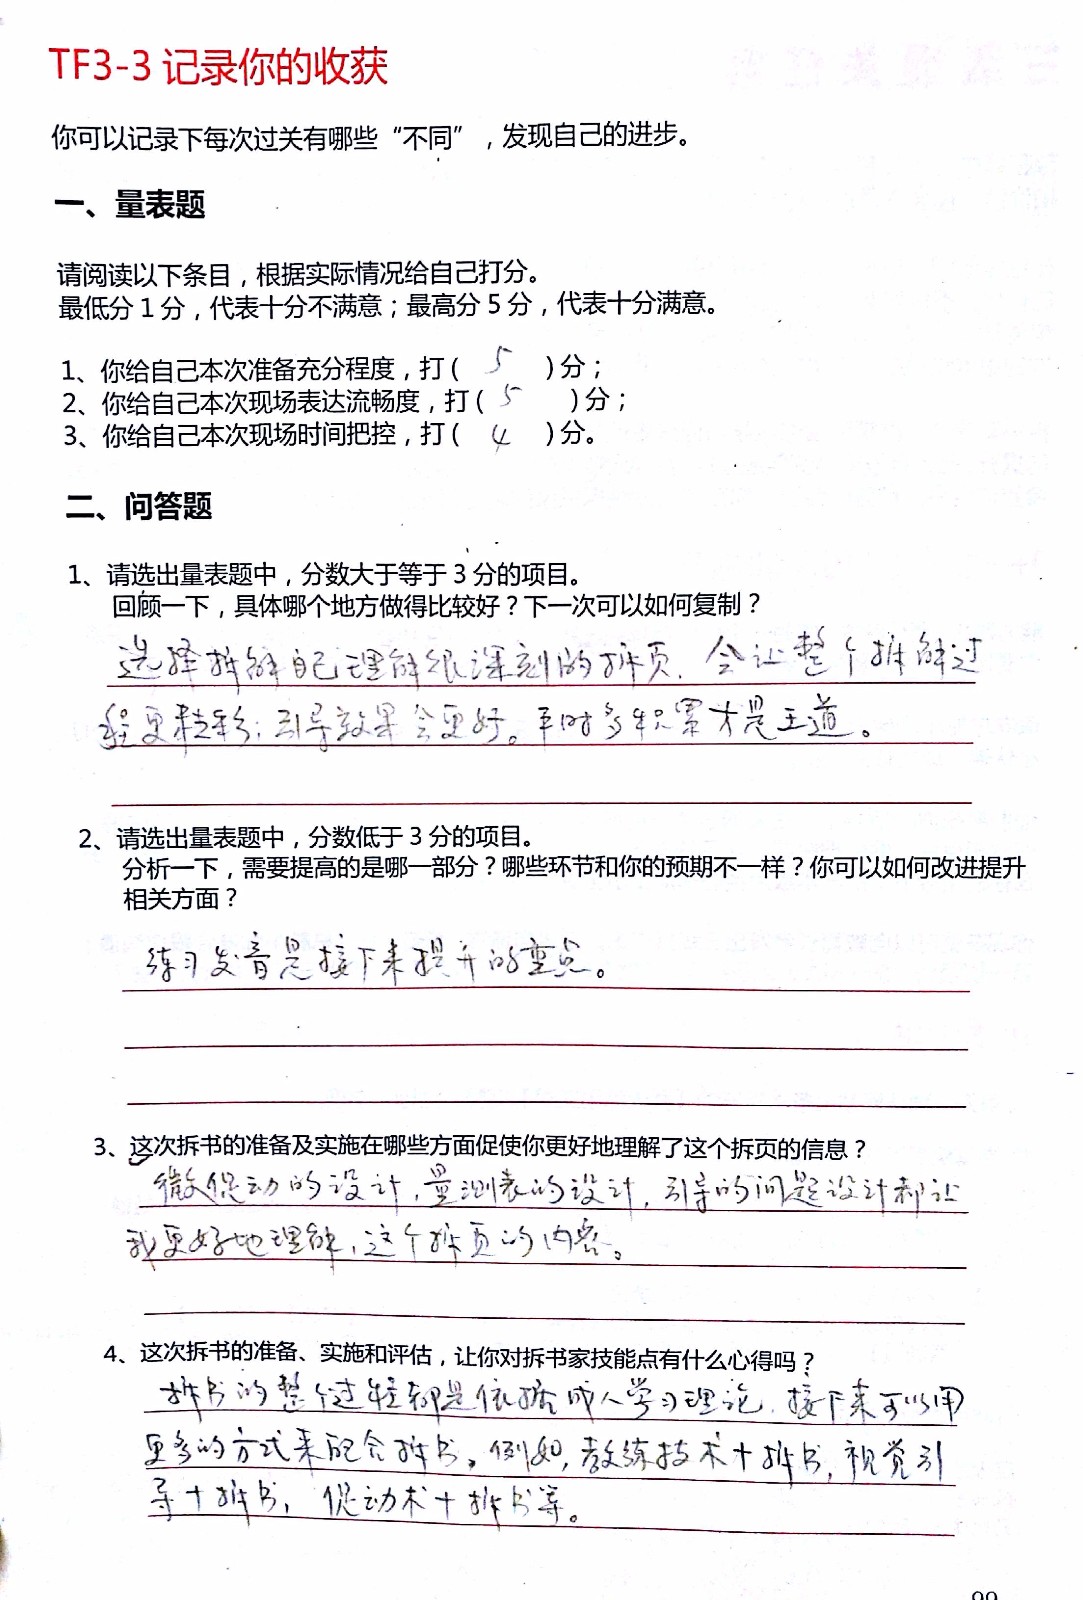 TF3-3 记录你的收获
你可以记录下每次过关有哪些“不同”，发现自己的进步。
一、量表题
请阅读以下条目，根据实际情况给自己打分。
最低分1分，代表十分不满意；最高分5分，代表十分满意。
1、你给自己本次准备充分程度，打( 5 )分；
2、你给自己本次现场表达流畅度，打( 5 )分；
3、你给自己本次现场时间把控，打( 4 )分。
二、问答题
1、请选出量表题中，分数大于等于3分的项目。
回顾一下，具体哪个地方做得比较好？下一次可以如何复制？
选择拆解自己理解很深刻的拆页，会让整个拆解过
程更精彩；引导效果会更好。平时多积累才是王道。
2、请选出量表题中，分数低于3分的项目。
分析一下，需要提高的是哪一部分？哪些环节和你的预期不一样？你可以如何改进提升
相关方面？
练习发音是接下来提升的重点。
3、这次拆书的准备及实施在哪些方面促使你更好地理解了这个拆页的信息？
微促动的设计，量测表的设计，引导的问题设计都让
我更好地理解，这个拆页的内容。
4、这次拆书的准备、实施和评估，让你对拆书家技能点有什么心得吗？
拆书的整个过程都是依据成人学习理论，接下来可以用
更多的方式来配合拆书。例如，教练技术+拆书，视觉引
导+拆书，促动术+拆书等。